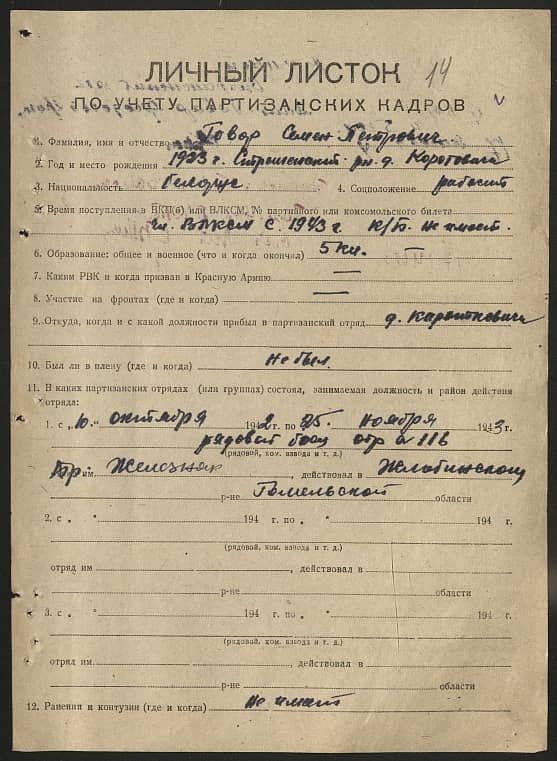 14
ЛИЧНЫЙ ЛИСТОК
ПО УЧЕТУ ПАРТИЗАНСКИХ КАДРОВ
1. Фамилия, имя и отчество Говор Семен Петрович
2. Год и место рождения 1923 г. Стрешенский р-н. д. Коротовичи
3. Национальность белорус 4. Соцположение рабочий
5. Время поступления в ВКП(б) или ВЛКСМ, № партийного или комсомольского билета
чл. ВЛКСМ с. 1943 г. К/б. не имеет.
6. Образование: общее и военное (что и когда окончил) 5 кл. —
7. Каким РВК и когда призван в Красную Армию —
8. Участие на фронтах (где и когда) —
9. Откуда, когда и с какой должности прибыл в партизанский отряд д.
10. Был ли в плену (где и когда) Не был.
11. В каких партизанских отрядах (или группах) состоял, занимаемая должность и район действия
отряда:
1. с „10.“ октября 1942 г. по 25. ноября 1943 г.
рядовой боец отр 116
(рядовой, ком. взвода и т. д.)
бр. им. Железняк, действовал в Жлобинском
р-не Гомельской области
2. с „ “ 194 г. по „ “ 194 г.
(рядовой, ком. взвода и т. д.)
отряд им , действовал в
р-не области
3. с „ “ 194 г. по „ “ 194 г.
(рядовой, ком. взвода и т. д.)
отряд им , действовал в
р-не области
12. Ранения и контузии (где и когда) Не имеет